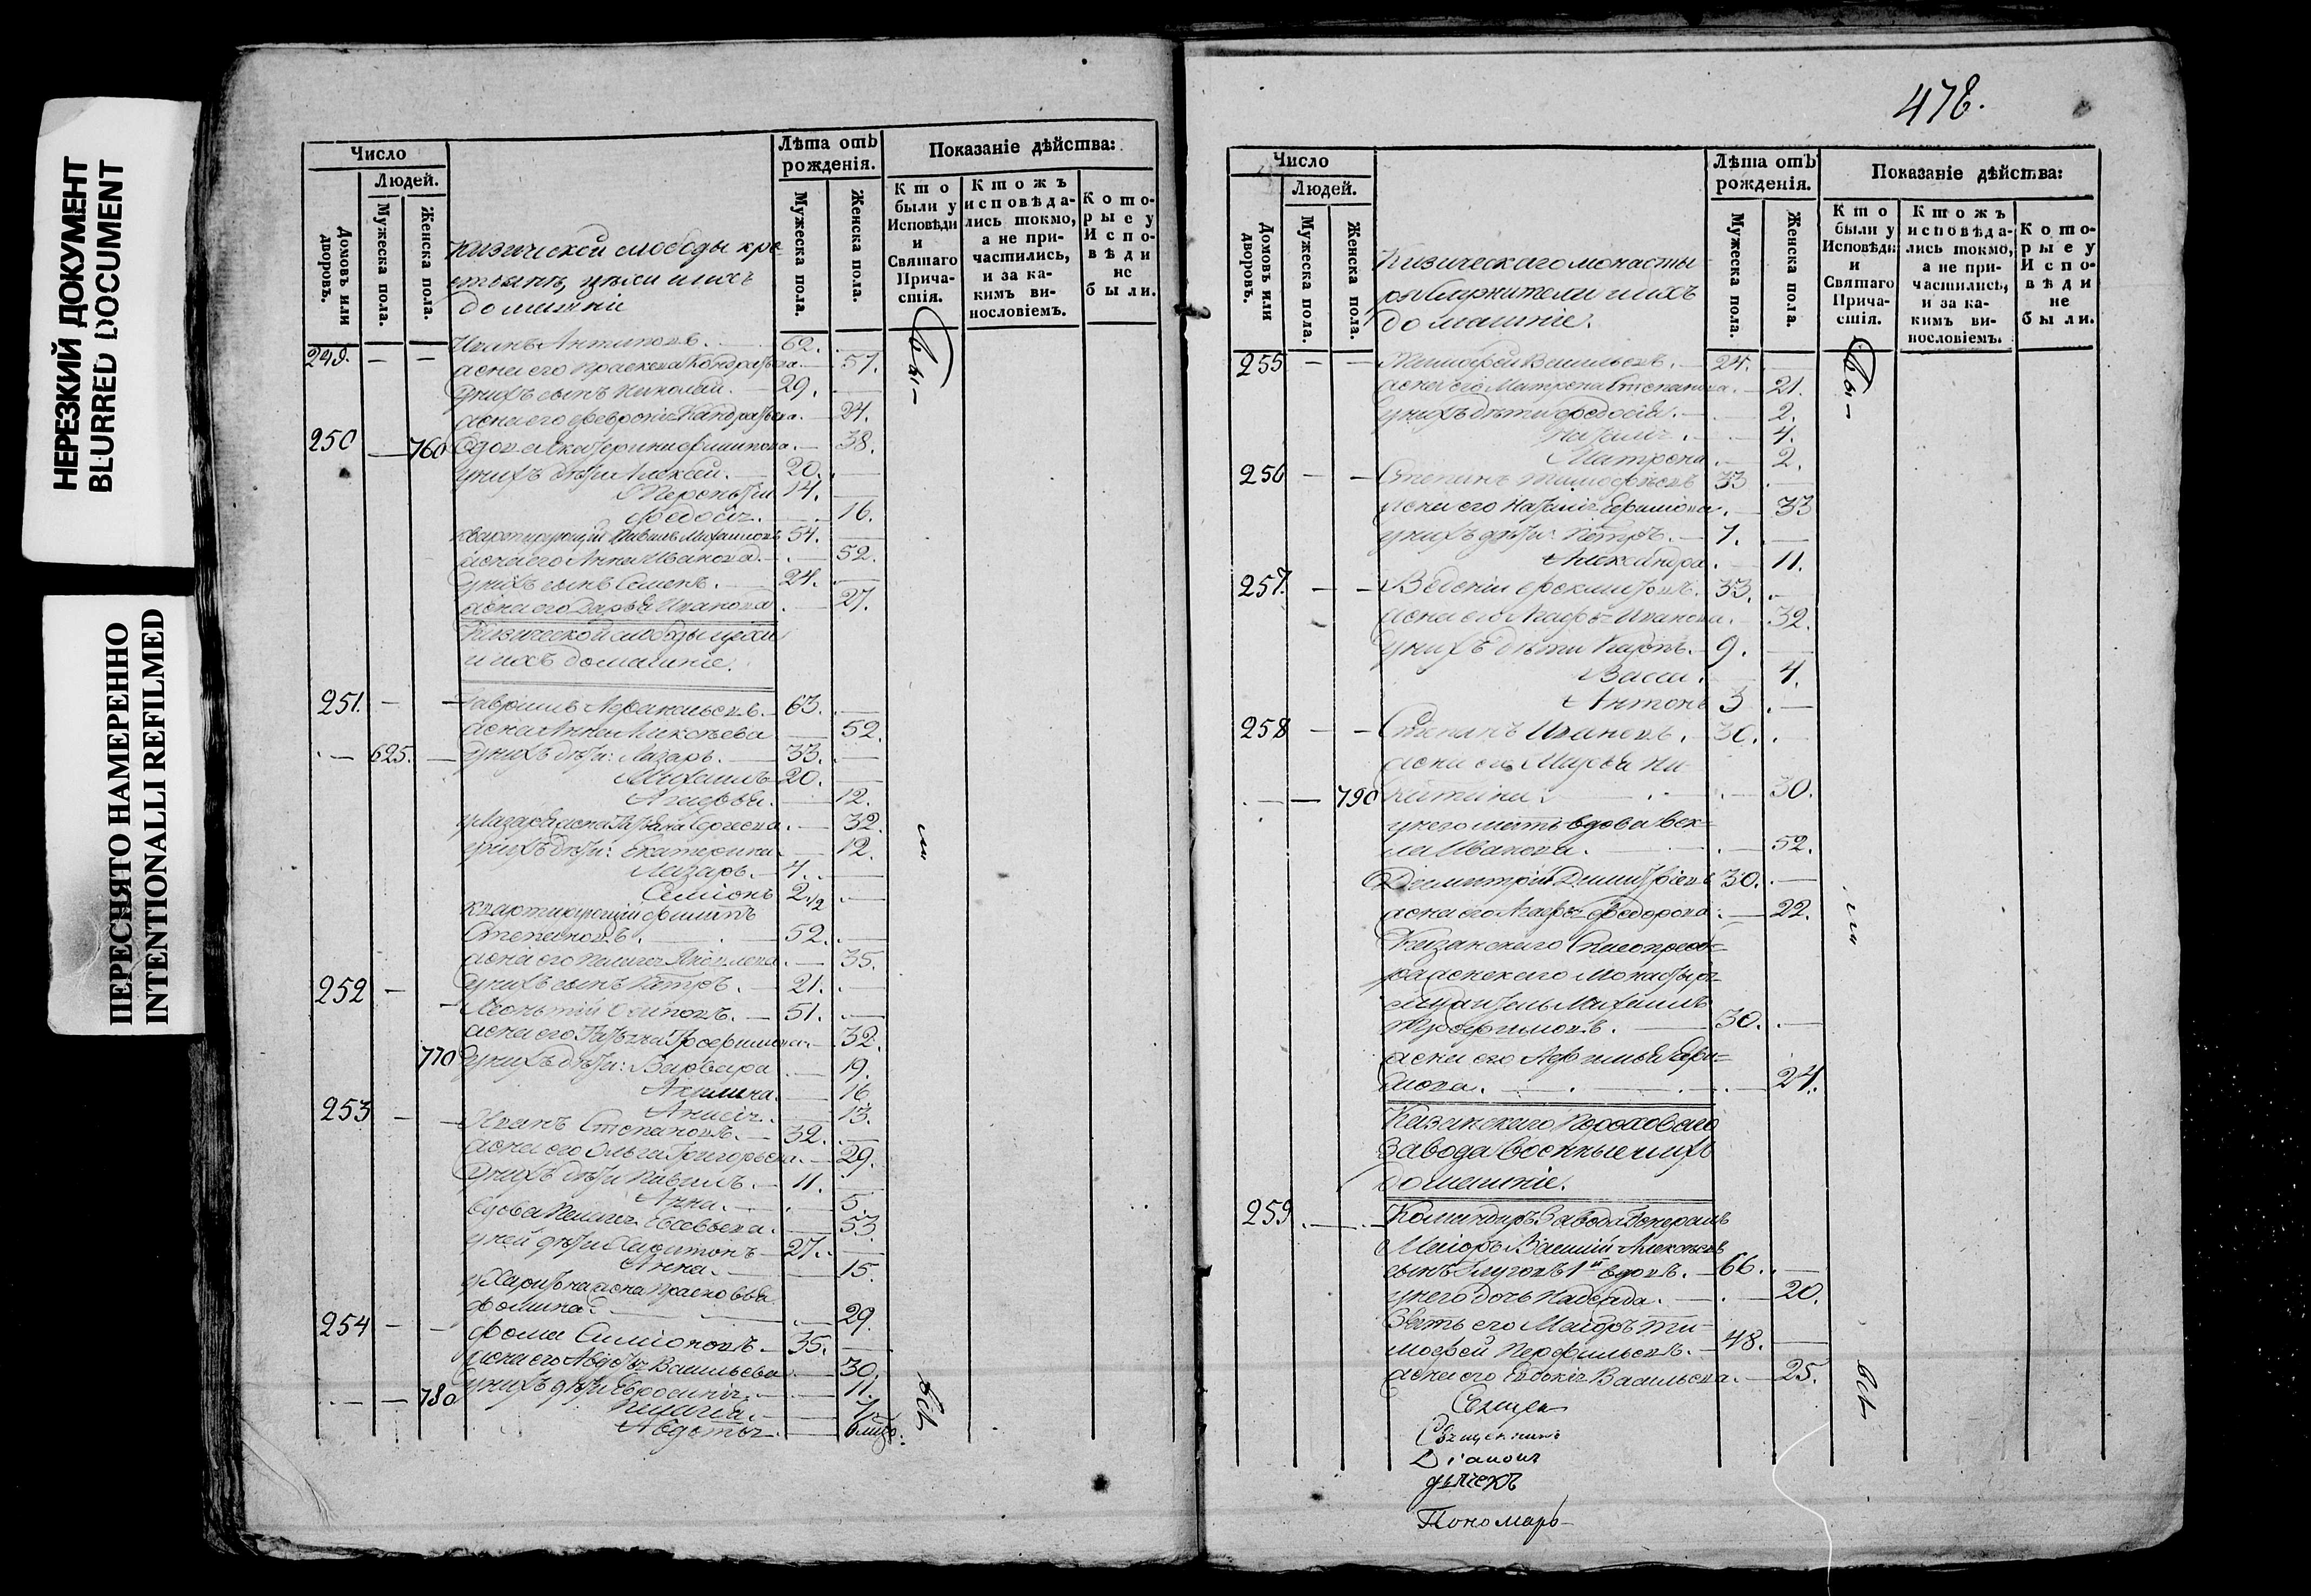 НЕРЕЗКИЙ ДОКУМЕНТ
BLURRED DOCUMENT
ПЕРЕСНЯТО НАМЕРЕННО
INTENTIONALLI REFILMED
Число
Людей.
Домовъ или дворовъ.
Мужеска пола.
Женска пола.
Кизической слободы кре
стьянъ, цехи и ихъ
домашніе
Лѣта отъ рожденія.
Мужеска пола.
Женска пола.
Показаніе дѣйства:
Кто были у Исповѣди и Святаго Причастія.
Ктожъ исповѣдались токмо, а не причастились, и за какимъ винословіемъ.
Которые у Исповѣди не были.
249. — — Иванъ Антиповъ. 62.
жена его Прасковья Кондратьева 57.
у нихъ сынъ Николай. 29.
жена его Февронія Кондратьева. 24.
250 — 760 Вдова Екатерина Филипова. 38.
у нихъ дѣти Алексей. 20.
14.
Федосія. 16.
квартирующій Павелъ Михайловъ 54.
жена его Анна Иванова. 52.
у нихъ сынъ Семенъ. 24.
жена его Дарья Иванова 27.
Кизической слободы цехи
и ихъ домашніе.
251. — — Гаврилъ Афанасьевъ. 63.
жена Анна Алексѣева 52.
— 625. — у нихъ дѣти: Лазарь. 33.
Михаилъ 20.
Агафья. 12.
у Лазаря жена Татьяна Сергеева. 32.
у нихъ дѣти: Екатерина. 12.
Лазарь. 4.
Семіонъ 2 1/2
квартирующій Филипъ
Степановъ. 52.
жена его Пелагея 35.
у нихъ сынъ Петръ. 21.
252 — — Леонтій Осиповъ. 51.
жена его Татьяна Трофимова. 32.
770 у нихъ дѣти: Варвара 19.
Акулина. 16.
Анисія. 13.
253 — — Иванъ Степановъ. 32.
жена его Ольга Григорьева. 29.
у нихъ дѣти Павелъ. 11.
Анна. 5.
вдова Пелагея 53.
у ней дѣти Харитонъ 27.
Анна. 15.
у Харитона жена Прасковья
Фомина. 29.
254 — — Фома Симіоновъ. 35.
жена его Авдотья Васильева 30.
у нихъ дѣти Ефросинія. 11.
— — 780 Пелагея. 7
Авдотья 6 мѣс.
Бы-
ли
всѣ
478.
Число
Людей.
Домовъ или дворовъ.
Мужеска пола.
Женска пола.
Кизическаго монасты
ря служители и ихъ
домашніе.
Лѣта отъ рожденія.
Мужеска пола.
Женска пола.
Показаніе дѣйства:
Кто были у Исповѣди и Святаго Причастія.
Ктожъ исповѣдались токмо, а не причастились, и за какимъ винословіемъ.
Которые у Исповѣди не были.
255 — — Тимофей Васильевъ. 24.
жена его Матрона Степанова. 21.
у нихъ дѣти Федосья. 2.
Наталія. 4.
Матрона 2.
256 — — Степанъ Тимофѣевъ 33
жена его Наталія Ефимова. 33
у нихъ дѣти: Петръ. 7.
Александра. 11.
257. — — 33.
жена его Агафья Иванова. 32.
у нихъ дѣти Карпъ. 9.
Васса. 4.
Антонъ 3
258 — — Степанъ Ивановъ. 30.
жена его Марья Ни-
— — 790 китина. 30.
у него мать вдова Фек-
ла Иванова. 52.
Димитрій Димитріевъ 30.
жена его Агафья Федорова. 22.
Казанскаго Спасопреоб-
раженскаго Монастыря
Михаилъ
Трофимовъ. 30.
жена его Афимья Ефи-
мова. 24.
Казанскаго Пороховаго
Завода Военные и ихъ
домашніе.
259. — — Командиръ Завода Генералъ
Маіоръ Василій Алексѣевъ
сынъ 1й вдовъ. 66.
у него дочь Надежда. 20.
Зять его Маіоръ Ти-
мофей Перфильевъ. 48.
жена его Евдокія Васильева. 25.
Бы-
ли
всѣ
Священ
Священникъ
Діаконъ
Дьячекъ
Пономарь